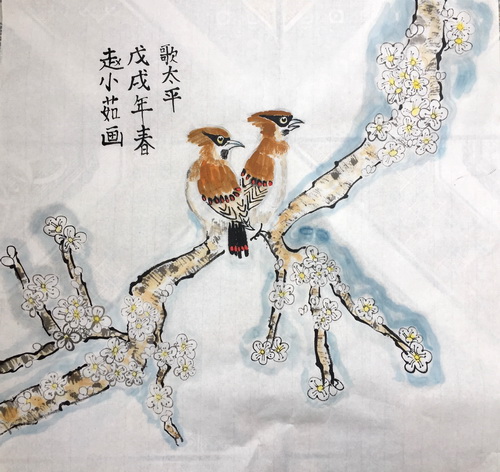 歌太平
戊戌年春
赵小茹画